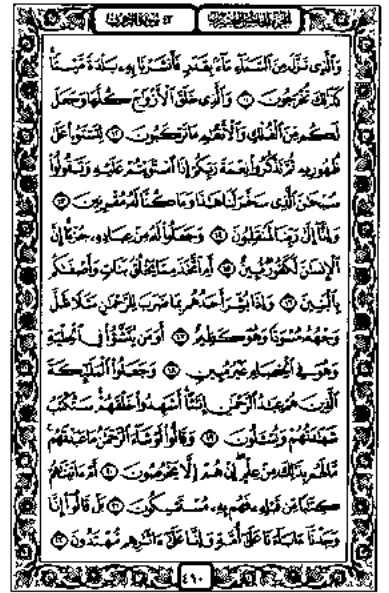 الجزء الخامس والعشرون ٤٣ سورة الزخرف
وَالَّذِي نَزَّلَ مِنَ السَّمَاءِ مَاءً بِقَدَرٍ فَأَنشَرْنَا بِهِ بَلْدَةً مَّيْتًا
كَذَٰلِكَ تُخْرَجُونَ ١١ وَالَّذِي خَلَقَ الْأَزْوَاجَ كُلَّهَا وَجَعَلَ
لَكُم مِّنَ الْفُلْكِ وَالْأَنْعَامِ مَا تَرْكَبُونَ ١٢ لِتَسْتَوُوا عَلَىٰ
ظُهُورِهِ ثُمَّ تَذْكُرُوا نِعْمَةَ رَبِّكُمْ إِذَا اسْتَوَيْتُمْ عَلَيْهِ وَتَقُولُوا
سُبْحَانَ الَّذِي سَخَّرَ لَنَا هَٰذَا وَمَا كُنَّا لَهُ مُقْرِنِينَ ١٣
وَإِنَّا إِلَىٰ رَبِّنَا لَمُنقَلِبُونَ ١٤ وَجَعَلُوا لَهُ مِنْ عِبَادِهِ جُزْءًا إِنَّ
الْإِنسَانَ لَكَفُورٌ مُّبِينٌ ١٥ أَمِ اتَّخَذَ مِمَّا يَخْلُقُ بَنَاتٍ وَأَصْفَاكُم
بِالْبَنِينَ ١٦ وَإِذَا بُشِّرَ أَحَدُهُم بِمَا ضَرَبَ لِلرَّحْمَٰنِ مَثَلًا ظَلَّ
وَجْهُهُ مُسْوَدًّا وَهُوَ كَظِيمٌ ١٧ أَوَمَن يُنَشَّأُ فِي الْحِلْيَةِ
وَهُوَ فِي الْخِصَامِ غَيْرُ مُبِينٍ ١٨ وَجَعَلُوا الْمَلَائِكَةَ
الَّذِينَ هُمْ عِبَادُ الرَّحْمَٰنِ إِنَاثًا أَشَهِدُوا خَلْقَهُمْ سَتُكْتَبُ
شَهَادَتُهُمْ وَيُسْأَلُونَ ١٩ وَقَالُوا لَوْ شَاءَ الرَّحْمَٰنُ مَا عَبَدْنَاهُم
مَّا لَهُم بِذَٰلِكَ مِنْ عِلْمٍ إِنْ هُمْ إِلَّا يَخْرُصُونَ ٢٠ أَمْ آتَيْنَاهُمْ
كِتَابًا مِّن قَبْلِهِ فَهُم بِهِ مُسْتَمْسِكُونَ ٢١ بَلْ قَالُوا إِنَّا
وَجَدْنَا آبَاءَنَا عَلَىٰ أُمَّةٍ وَإِنَّا عَلَىٰ آثَارِهِم مُّهْتَدُونَ ٢٢
٤٩٠